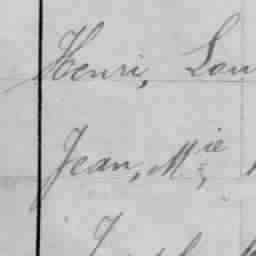 Henri, Lou
Jean, M.ie,